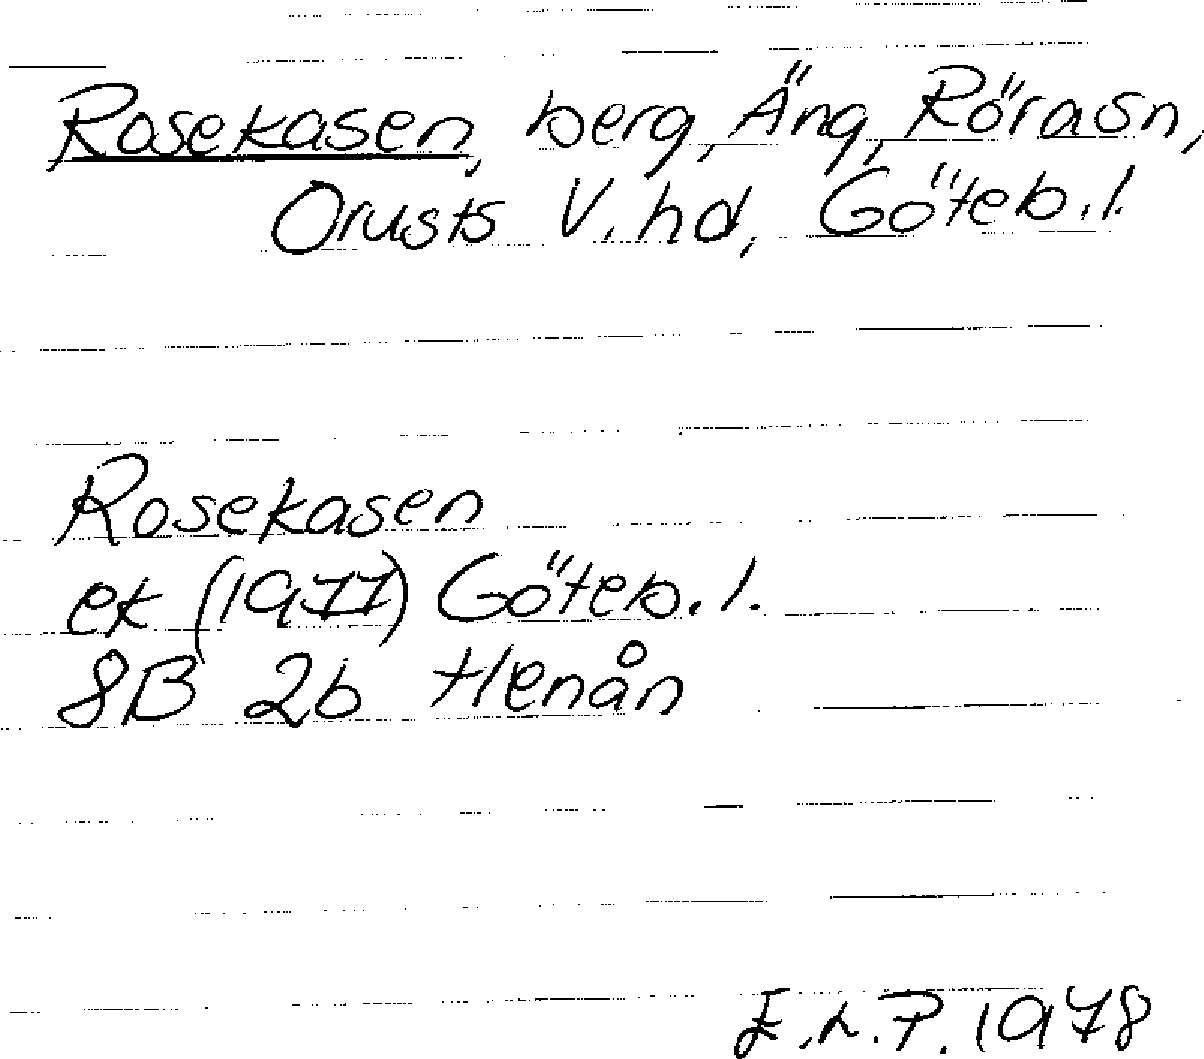 Rosekasen, berg, Äng, Röra sn,
Orusts V. hd, Göteb. l.
Rosekasen
ek (1977) Göteb. l.
8B 2b Henån
E.L.P. 1978